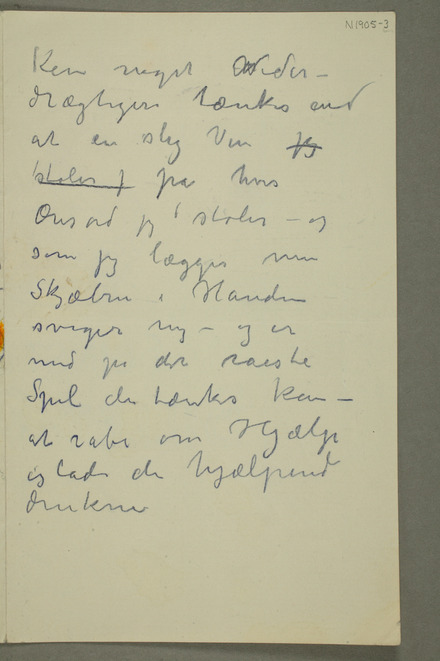 N1905-3
Kan noget Neder-
drægtigere tænkes end
at en slig Ven jeg
stoler j på hvis
Æresord jeg stoler – og
som jeg lægger min
Skjæbne i Handen
sviger mig – og er
med på det raaeste
Spil der tænkes kan –
at raabe om Hjælp
og lade den hjælpende
drukne